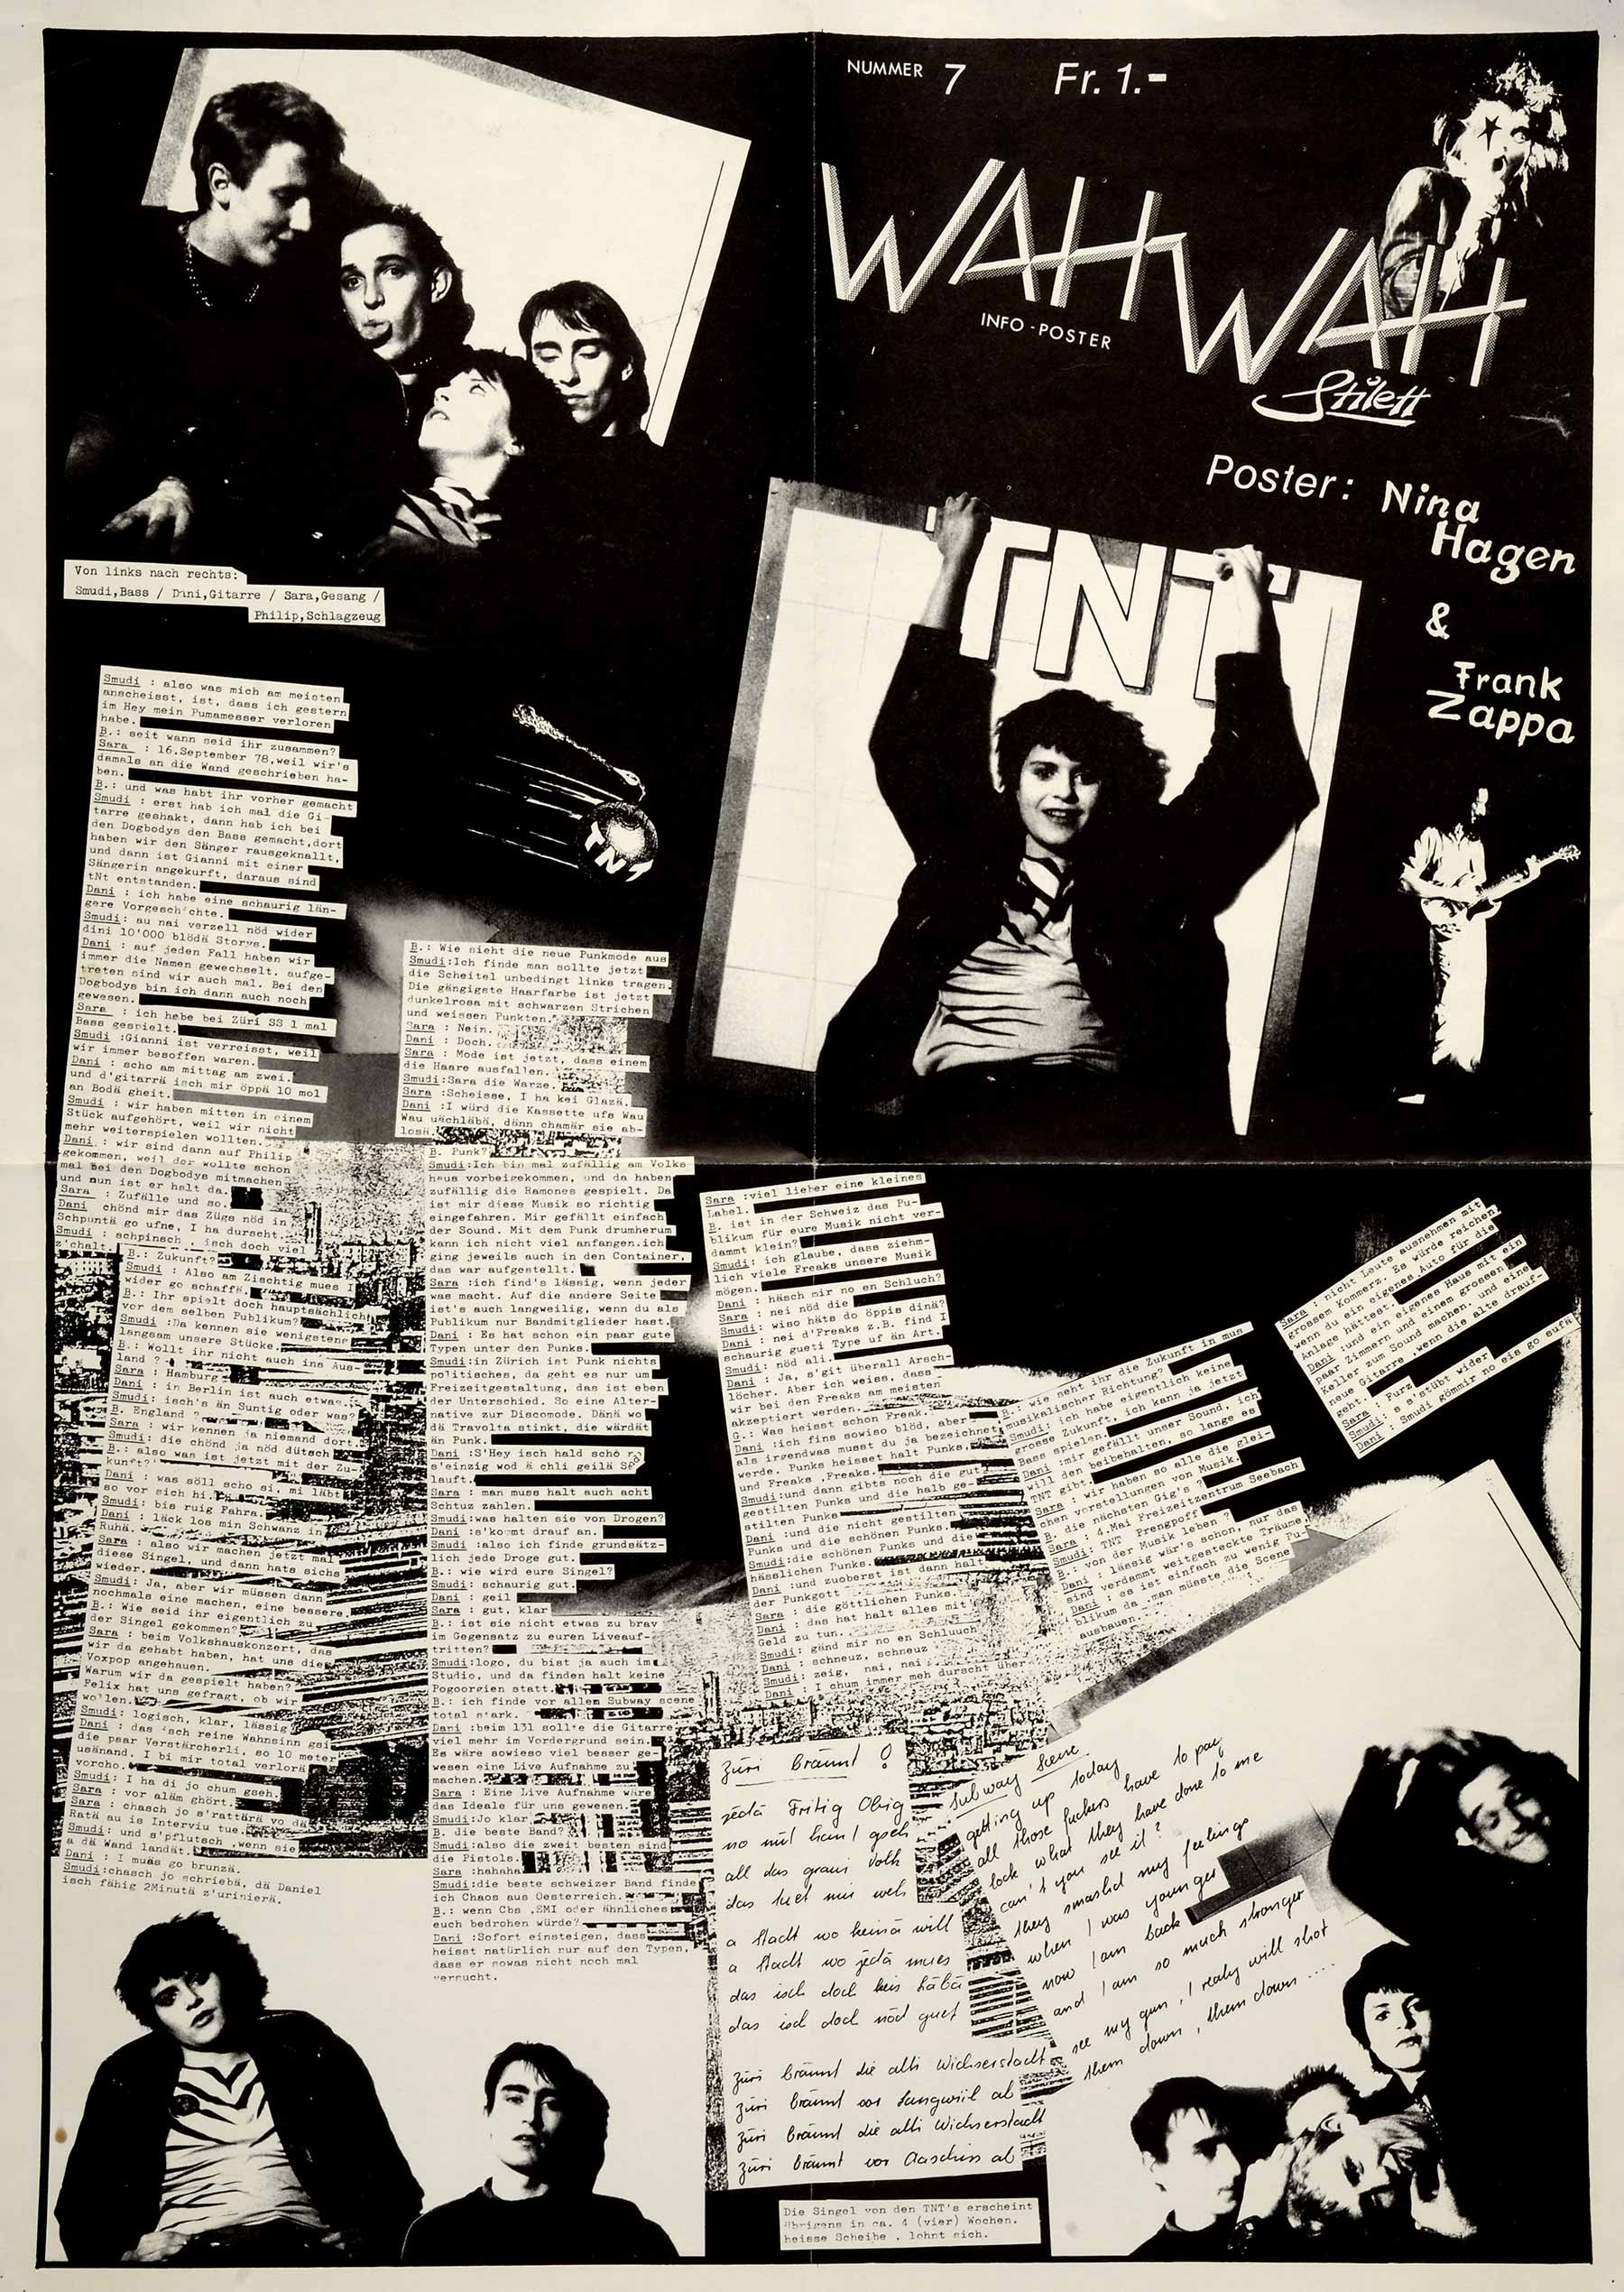 NUMMER 7 Fr. 1.-
WAH WAH
INFO-POSTER
Stilett
Poster: Nina
Hagen
&
Frank
Zappa
TNT
Von links nach rechts:
Smudi,Bass / Dani,Gitarre / Sara,Gesang /
Philip,Schlagzeug
TNT
Smudi : also was mich am meisten
anscheisst, ist, dass ich gestern
im Hey mein Pumamesser verloren
habe.
B.: seit wann seid ihr zusammen?
Sara : 16.September 78,weil wir's
damals an die Wand geschrieben ha-
ben.
B.: und was habt ihr vorher gemacht
Smudi : erst hab ich mal die Gi-
tarre geshakt, dann hab ich bei
den Dogbodys den Bass gemacht,dort
haben wir den Sänger rausgeknallt,
und dann ist Gianni mit einer
Sängerin angekurft, daraus sind
tNt entstanden.
Dani : ich habe eine schaurig län-
gere Vorgeschichte.
Smudi: au nai verzell nöd wider
dini 10'000 blödä Storys.
Dani : auf jeden Fall haben wir
immer die Namen gewechselt. aufge-
treten sind wir auch mal. Bei den
Dogbodys bin ich dann auch noch
gewesen.
Sara : ich hebe bei Züri SS 1 mal
Bass gespielt.
Smudi :Gianni ist verreisst, weil
wir immer besoffen waren.
Dani : scho am mittag am zwei.
und d'gitarrä isch mir öppä 10 mol
an Bodä gheit.
Smudi : wir haben mitten in einem
Stück aufgehört, weil wir nicht
mehr weiterspielen wollten.
Dani : wir sind dann auf Philip
gekommen, weil der wollte schon
mal bei den Dogbodys mitmachen
und nun ist er halt da.
Sara : Zufälle und so.
Dani chönd mir das Züge nöd in
Schpuntä go ufne, I ha durscht.
Smudi : schpinsch , isch doch viel
z'chalt.
B.: Zukunft?
Smudi : Also am Zischtig mues I
wider go schaffä.
B.: Ihr spielt doch hauptsächlich
vor dem selben Publikum?
Smudi :Da kennen sie wenigstens
langsam unsere Stücke.
B.: Wollt ihr nicht auch ins Aus-
land ?
Sara : Hamburg
Dani : in Berlin ist auch etwas.
Smudi: isch's än Suntig oder was?
B. England ?
Sara : wir kennen ja niemand dort.
Smudi: die chönd ja nöd dütsch
B.: also was ist jetzt mit der Zu-
kunft?
Dani : was söll scho si, mi läbt
so vor sich hi.
Smudi: bis ruig Fahra.
Dani : läck los min Schwanz in
Ruhä.
Sara : also wir machen jetzt mal
diese Singel, und dann hats sichs
wieder.
Smudi: Ja, aber wir müssen dann
nochmals eine machen, eine bessere.
B.: Wie seid ihr eigentlich zu
der Singel gekommen?
Sara : beim Volkshauskonzert, das
wir da gehabt haben, hat uns die
Voxpop angehauen.
Warum wir da gespielt haben?
Felix hat uns gefragt, ob wir
wollen.
Smudi: logisch, klar, lässig
Dani : das isch reine Wahnsinn gsi
die paar Verstärcherli, so 10 meter
usänand. I bi mir total verlorä
vorcho.
Smudi: I ha di jo chum gseh.
Sara : vor aläm ghört.
Sara : chasch jo s'rattärä vo dä
Ratä au is Interviu tue.
Smudi: und s'pflutsch ,wenn sie
a dä Wand landät.
Dani : I muäs go brunzä.
Smudi:chasch jo schriebä, dä Daniel
isch fähig 2Minutä z'urinierä.
B.: Wie sieht die neue Punkmode aus
Smudi:Ich finde man sollte jetzt
die Scheitel unbedingt links tragen.
Die gängigste Haarfarbe ist jetzt
dunkelrosa mit schwarzen Strichen
und weissen Punkten.
Sara : Nein.
Dani : Doch.
Sara : Mode ist jetzt, dass einem
die Haare ausfallen.
Smudi:Sara die Warze.
Sara :Scheisse, I ha kei Glazä.
Dani :I würd die Kassette ufs Wau
Wau uächläbä, dänn chamär sie ab-
losä.
B. Punk?
Smudi:Ich bin mal zufällig am Volks
haus vorbeigekommen, und da haben
zufällig die Ramones gespielt. Da
ist mir diese Musik so richtig
eingefahren. Mir gefällt einfach
der Sound. Mit dem Punk drumherum
kann ich nicht viel anfangen.ich
ging jeweils auch in den Container,
das war aufgestellt.
Sara :ich find's lässig, wenn jeder
was macht. Auf die andere Seite
ist's auch langweilig, wenn du als
Publikum nur Bandmitglieder hast.
Dani : Es hat schon ein paar gute
Typen unter den Punks.
Smudi:in Zürich ist Punk nichts
politisches, da geht es nur um
Freizeitgestaltung, das ist eben
der Unterschied. So eine Alter-
native zur Discomode. Dänä wo
dä Travolta stinkt, die würdät
än Punk.
Dani :S'Hey isch hald scho
s'einzig wod ä chli geilä
lauft.
Sara : man muss halt auch acht
Schtuz zahlen.
Smudi:was halten sie von Drogen?
Dani :s'kommt drauf an.
Smudi :also ich finde grundsätz-
lich jede Droge gut.
B.: wie wird eure Singel?
Smudi: schaurig gut.
Dani : geil
Sara : gut, klar
B.: ist sie nicht etwas zu brav
im Gegensatz zu euren Liveauf-
tritten?
Smudi:logo, du bist ja auch im
Studio, und da finden halt keine
Pogoorgien statt.
B.: ich finde vor allen Subway scene
total stark.
Dani :beim 131 sollte die Gitarre
viel mehr im Vordergrund sein.
Es wäre sowieso viel besser ge-
wesen eine Live Aufnahme zu
machen.
Sara : Eine Live Aufnahme wäre
das Ideale für uns gewesen.
Smudi:Jo klar
B. die beste Band?
Smudi:also die zweit besten sind
die Pistols.
Sara :hahaha
Smudi:die beste schweizer Band finde
ich Chaos aus Oesterreich.
B.: wenn Cbs ,EMI oder ähnliches
euch bedrohen würde?
Dani :Sofort einsteigen, dass
heisst natürlich nur auf den Typen,
dass er sowas nicht noch mal
versucht.
Sara :viel lieber eine kleines
Label.
B. ist in der Schweiz das Pu-
blikum für eure Musik nicht ver-
dammt klein?
Smudi: ich glaube, dass ziehm-
lich viele Freaks unsere Musik
mögen.
Dani : häsch mir no en Schluch?
Sara : nei nöd die
Smudi: wiso häts do öppis dinä?
Dani : nei d'Freaks z.B. find I
schaurig gueti Type uf än Art.
Smudi: nöd ali.
Dani : Ja, s'git überall Arsch-
löcher. Aber ich weiss, dass
wir bei den Freaks am meisten
akzeptiert werden.
G.: Was heisst schon Freak.
Dani :ich fins sowiso blöd, aber
als irgendwas musst du ja bezeichnet
werde. Punks heisset halt Punks,
und Freaks ,Freaks.
Smudi:und dann gibts noch die gut
gestilten Punks und die halb ge-
stilten Punks
Dani :und die nicht gestilten
Punks und die schönen Punks.
Smudi:die schönen Punks und die
hässlichen Punks.
Dani :und zuoberst ist dann halt
der Punkgott
Sara : die göttlichen Punks.
Dani : das hat halt alles mit
Geld zu tun.
Smudi: gänd mir no en Schluuch
Dani : schneuz, schneuz
Smudi: zeig, nai, nai
Dani : I chum immer meh durscht über
B.: wie seht ihr die Zukunft in mus
musikalischer Richtung?
Smudi: ich habe eigentlich keine
grosse Zukunft, ich kann ja jetzt
Bass spielen.
Dani :mir gefällt unser Sound, ich
will den beibehalten, so lange es
TNT gibt.
Sara : wir haben so alle die glei-
chen vorstellungen von Musik.
B. die nächsten Gig's ?
Sara : 4.Mai Freizeitzentrum Seebach
Smudi: TNT Frengpoff
B.: von der Musik leben ?
Dani : lässig wär's schon, nur das
sind verdammt weitgesteckte Träume.
Dani : es ist einfach zu wenig Pu-
blikum da ,man müsste die Scene
ausbauen.
Sara : nicht Leute ausnehmen mit
grossem Kommerz. Es würde reichen
wenn du ein eigenes Auto für die
Anlage hättest.
Dani :und ein eigenes Haus mit ein
paar Zimmern und einem grossen
Keller zum Sound machen. und eine
neue Gitarre ,wenn die alte drauf-
geht.
Sara : Furz
Smudi: s'stübt wider
Dani : Smudi gömmir no eis go sufä
Züri brännt !
jedä Fritig Obig
no mit hani gseh
all das graui Volk
das tuet mir weh
a Stadt wo keinä will
a Stadt wo jedä mues
das isch doch keis Läbä
das isch doch nöd guet
züri brännt die alti Wichserstadt
züri brännt vor Langwiil ab
züri brännt die alti Wichserstadt
züri brännt vor Aaschiss ab
Subway Scene
getting up today
all those fuckers have to pay
look what they have done to me
can't you see it?
they smashd my feelings
when I was younger
now I am back
and I am so much stronger
see my gun, I realy will shot
them down, them down ....
Die Singel von den TNT's erscheint
übrigens in ca. 4 (vier) Wochen.
heisse Scheibe , lohnt sich.